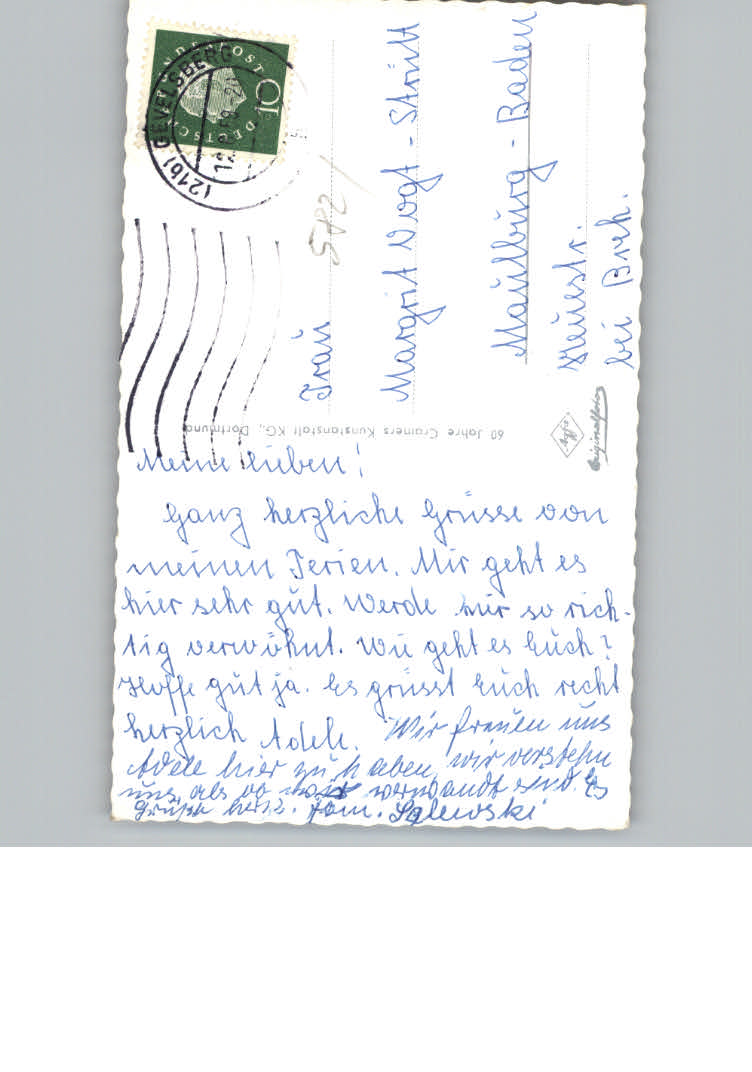 (21b) GEVELSBERG
DEUTSCHE BUNDESPOST
10
Frau
Margrit Vogt-Stritt
Maulburg-Baden
Neuestr.
bei Brch.
60 Jahre Cramers Kunstanstalt KG., Dortmund
Agfa
Originalfoto
Meine lieben!
Ganz herzliche Grüsse von
meinen Ferien. Mir geht es
hier sehr gut. Werde hier so rich-
tig verwöhnt. Wie geht es Euch?
Hoffe gut ja. Es grüsst Euch recht
herzlich Adele. Wir freuen uns
Adele hier zu haben, wir verstehn
uns, als ob wir verwandt sind. Es
grüßt herzl. Fam. Salewski